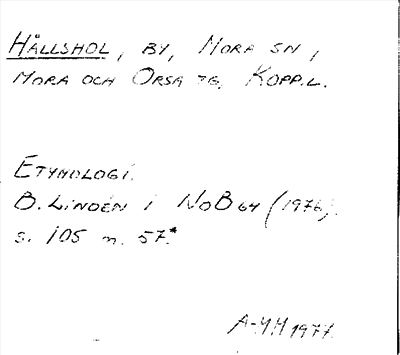 HÅLLSHOL, BY, MORA SN,
MORA OCH ORSA TG, KOPP.L.
ETYMOLOGI.
B. LINDÉN I NOB 64 (1976).
s. 105 n. 57.*
A-MM 1977.